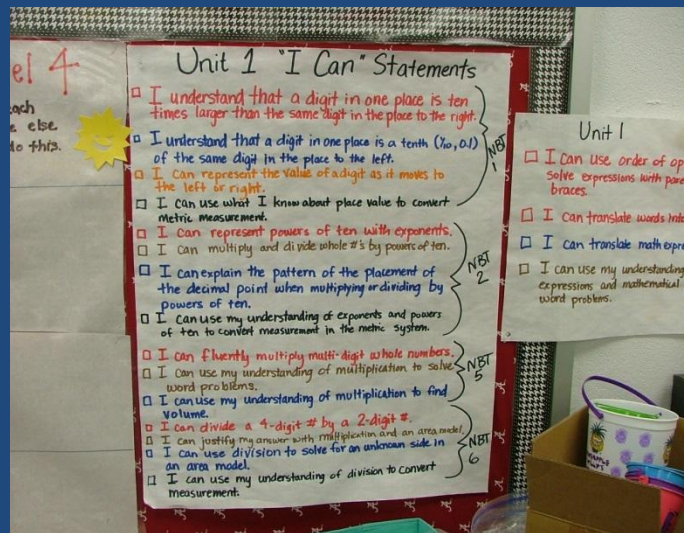 el 4
ach
e else.
do this.
Unit 1 "I Can" Statements
I understand that a digit in one place is ten
times larger than the same digit in the place to the right.
I understand that a digit in one place is a tenth (1/10, 0.1)
of the same digit in the place to the left.
I can represent the value of a digit as it moves to
the left or right.
I can use what I know about place value to convert
metric measurement.
NBT
1
I can represent powers of ten with exponents.
I can multiply and divide whole #'s by powers of ten.
I can explain the pattern of the placement of
the decimal point when multiplying or dividing by
powers of ten.
I can use my understanding of exponents and powers
of ten to convert measurement in the metric system.
NBT
2
I can fluently multiply multi-digit whole numbers.
I can use my understanding of multiplication to solve
word problems.
I can use my understanding of multiplication to find
volume.
NBT
5
I can divide a 4-digit # by a 2-digit #.
I can justify my answer with multiplication and an area model.
I can use division to solve for an unknown side in
an area model.
I can use my understanding of division to convert
measurement.
NBT
6
Unit 1
I can use order of op
solve expressions with pare
braces.
I can translate words into
I can translate math expre
I can use my understanding
expressions and mathematical
word problems.